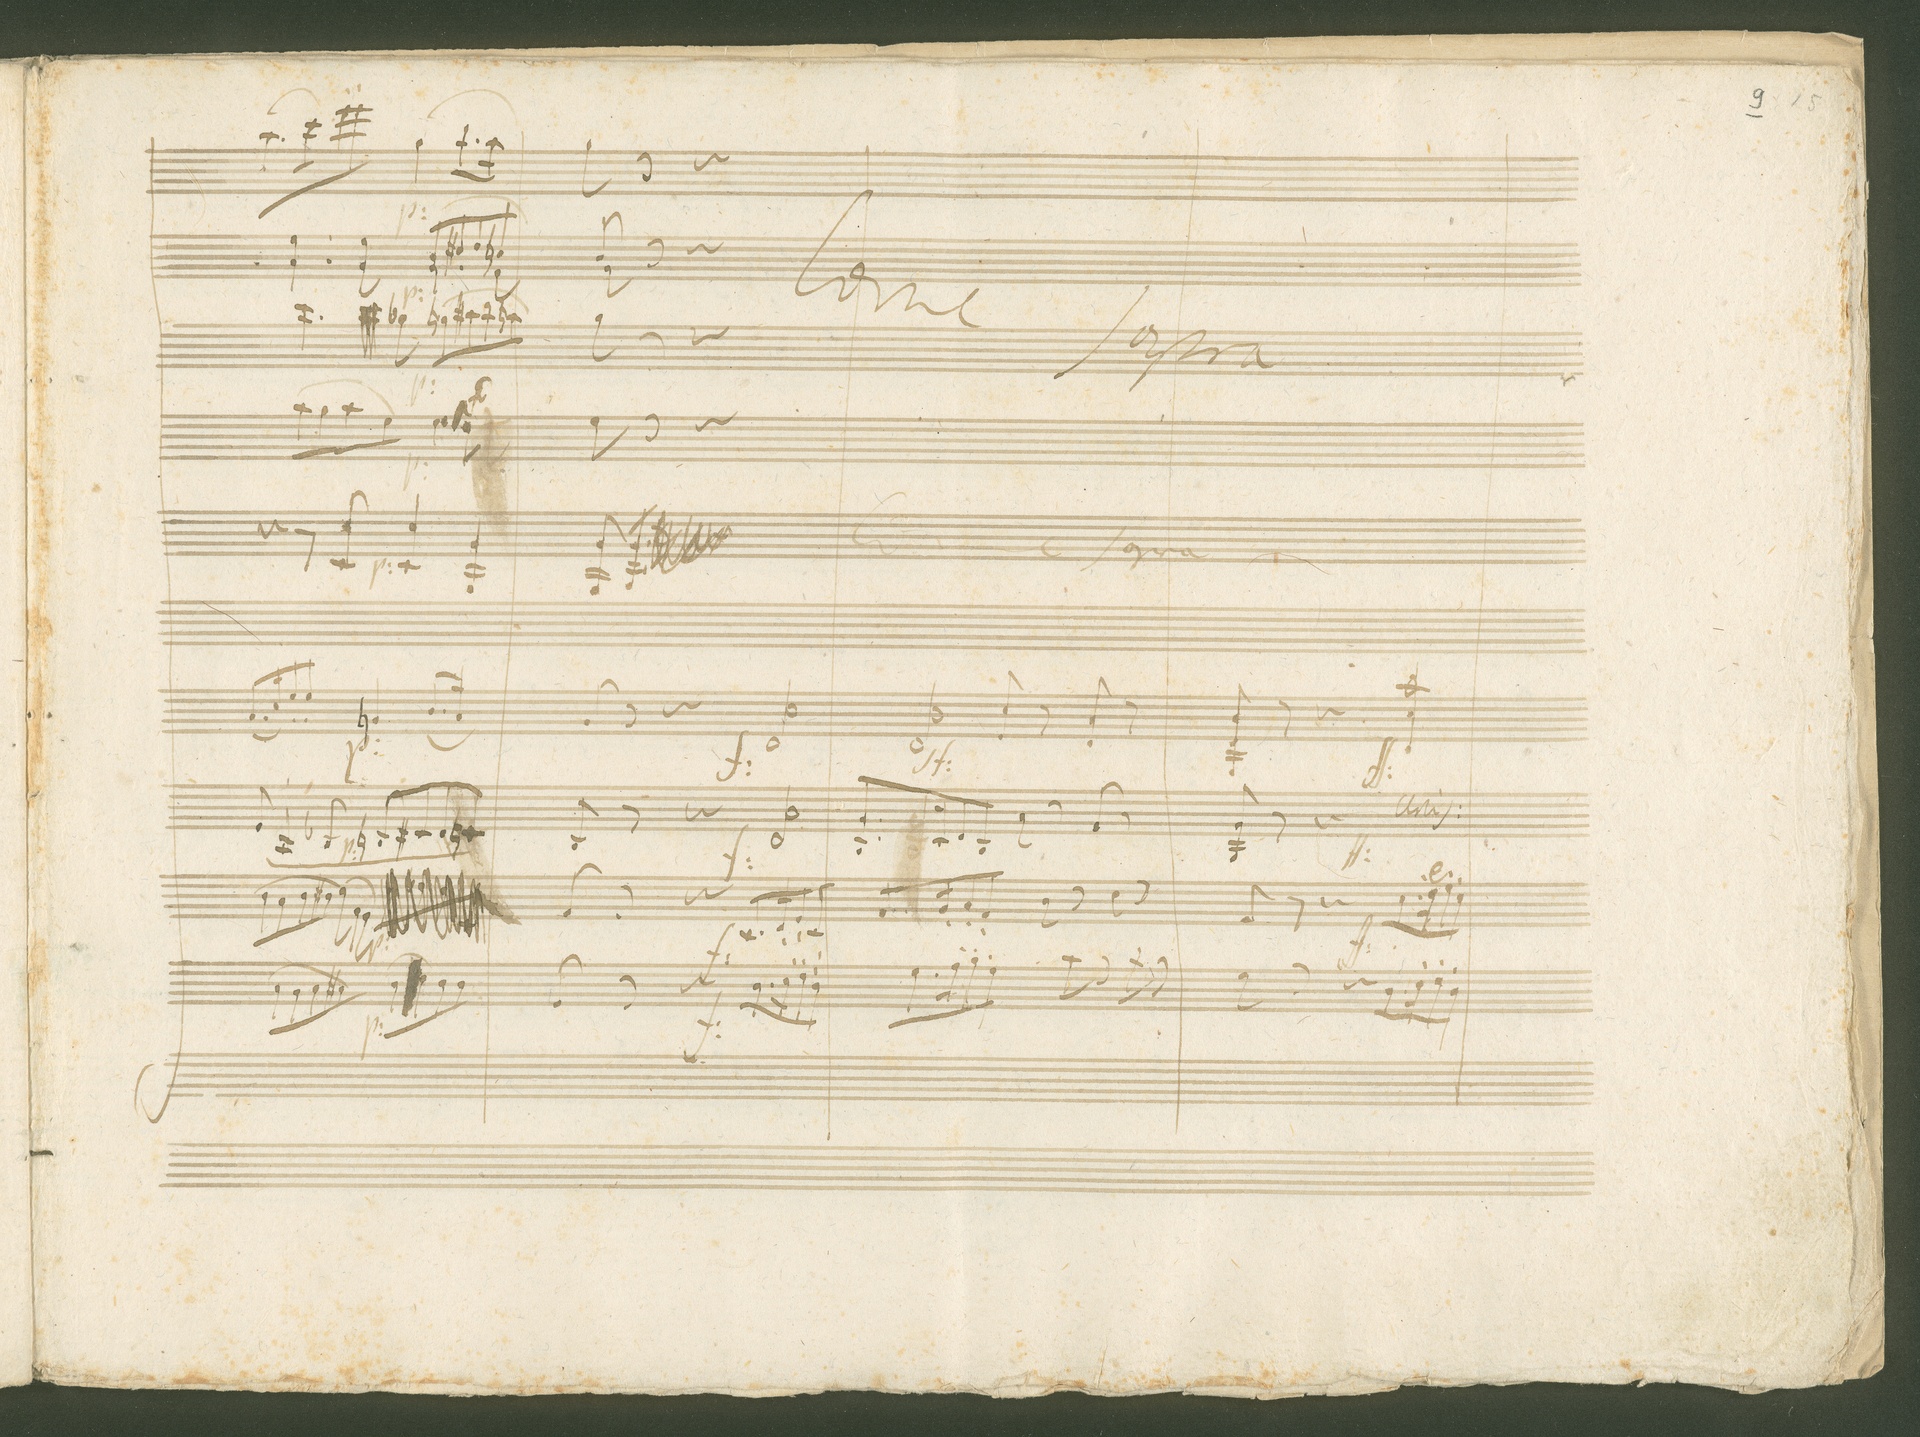 9 15
p:
Come
p:
Sopra
p:
p:
p:
Come Sopra
p:
f:
sf:
ff:
p:
f:
unis:
ff:
p:
f:
ff:
p:
f: